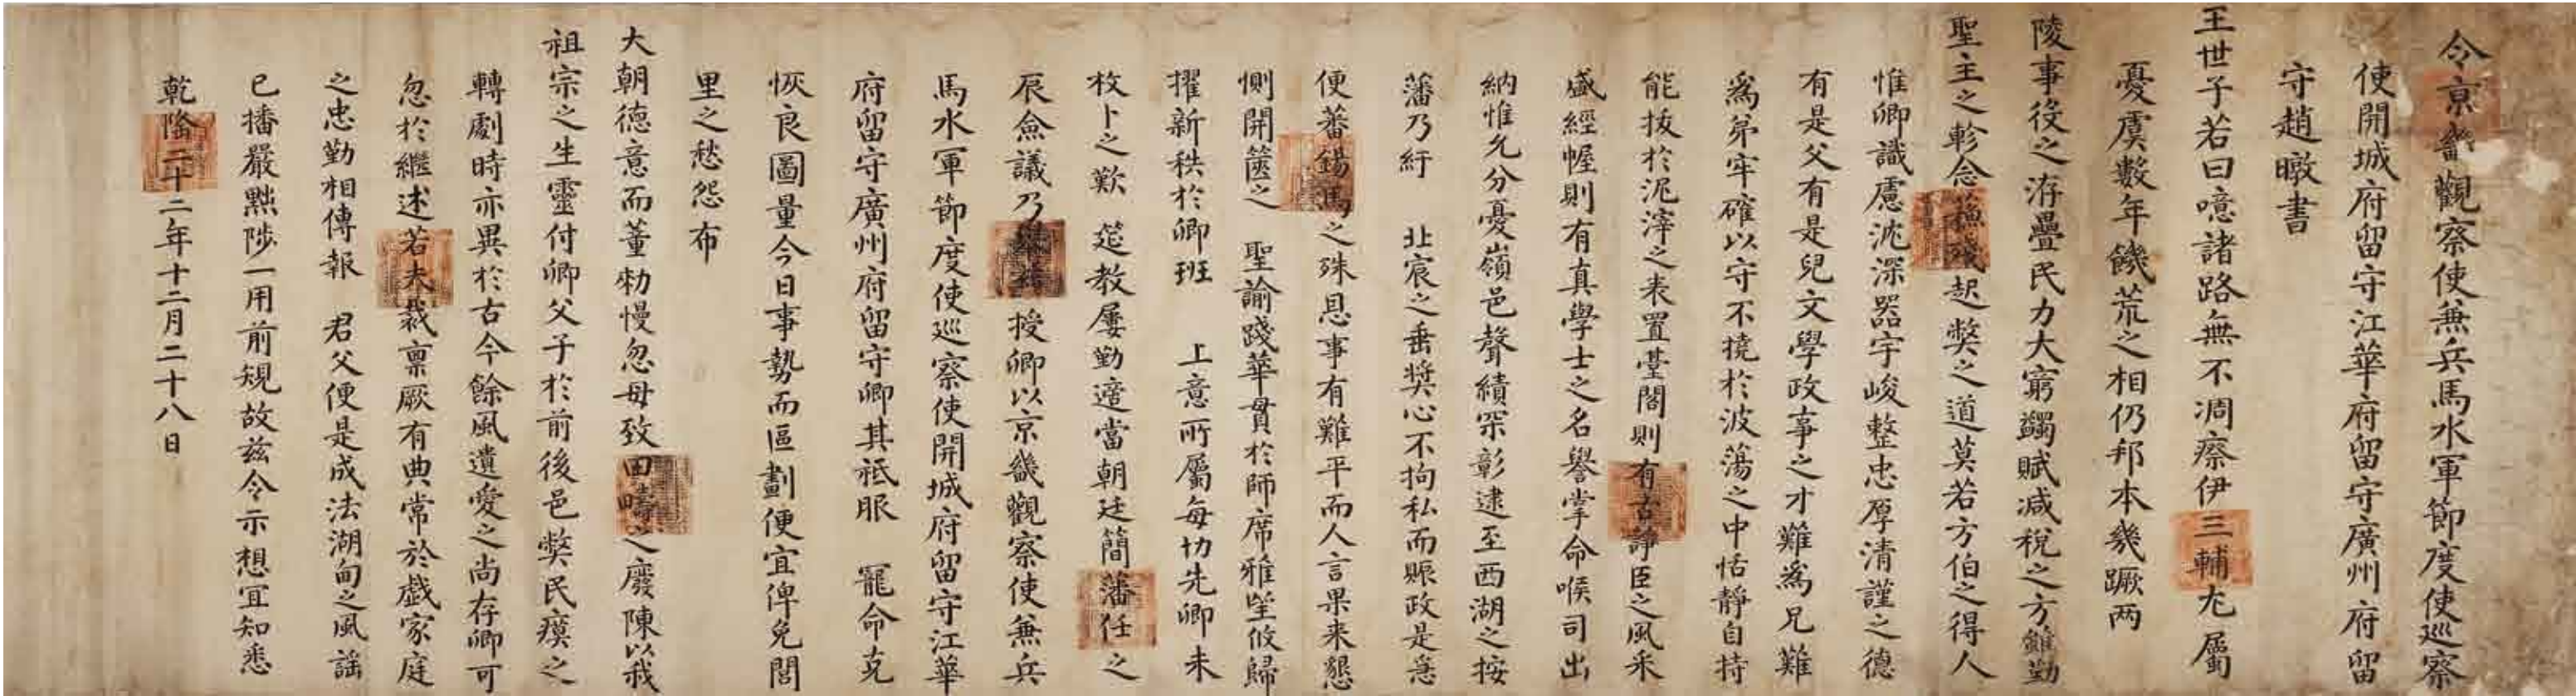 令京畿觀察使兼兵馬水軍節度使巡察
使開城府留守江華府留守廣州府留
守趙暾書
王世子若曰噫諸路無不凋瘵伊三輔尤屬
憂虞數年饑荒之相仍邦本幾蹶两
陵事役之洊疊民力大窮蠲賦減稅之方雖勤
聖主之軫念蘇殘起弊之道莫若方伯之得人
惟卿識慮沈深器宇峻整忠厚清謹之德
有是父有是兒文學政事之才難爲兄難
爲弟牢確以守不撓於波蕩之中恬靜自持
能拔於泥滓之表置臺閣則有古諍臣之風采
盛經幄則有真學士之名譽掌命喉司出
納惟允分憂嶺邑聲績罙彰逮至西湖之按
藩乃紆 北宸之垂奬心不拘私而賑政是急
便蕃錫馬之殊恩事有難平而人言果来懇
惻開篋之 聖諭踐華貫於師席雅望攸歸
擢新秩於卿班 上意所屬每切先卿未
枚卜之歎 筵教屢勤適當朝廷簡藩任之
辰僉議乃擧玆授卿以京畿觀察使兼兵
馬水軍節度使巡察使開城府留守江華
府留守廣州府留守卿其祗服 寵命克
恢良圖量今日事勢而區劃便宜俾免閭
里之愁怨布
大朝德意而董勅慢忽毋致田疇之廢陳以我
祖宗之生靈付卿父子於前後邑弊民瘼之
轉劇時亦異於古今餘風遺愛之尚存卿可
忽於繼述若夫裁禀厥有典常於戲家庭
之忠勤相傳報 君父便是成法湖甸之風謡
已播嚴黜陟一用前規故玆令示想宜知悉
乾隆二十二年十二月二十八日